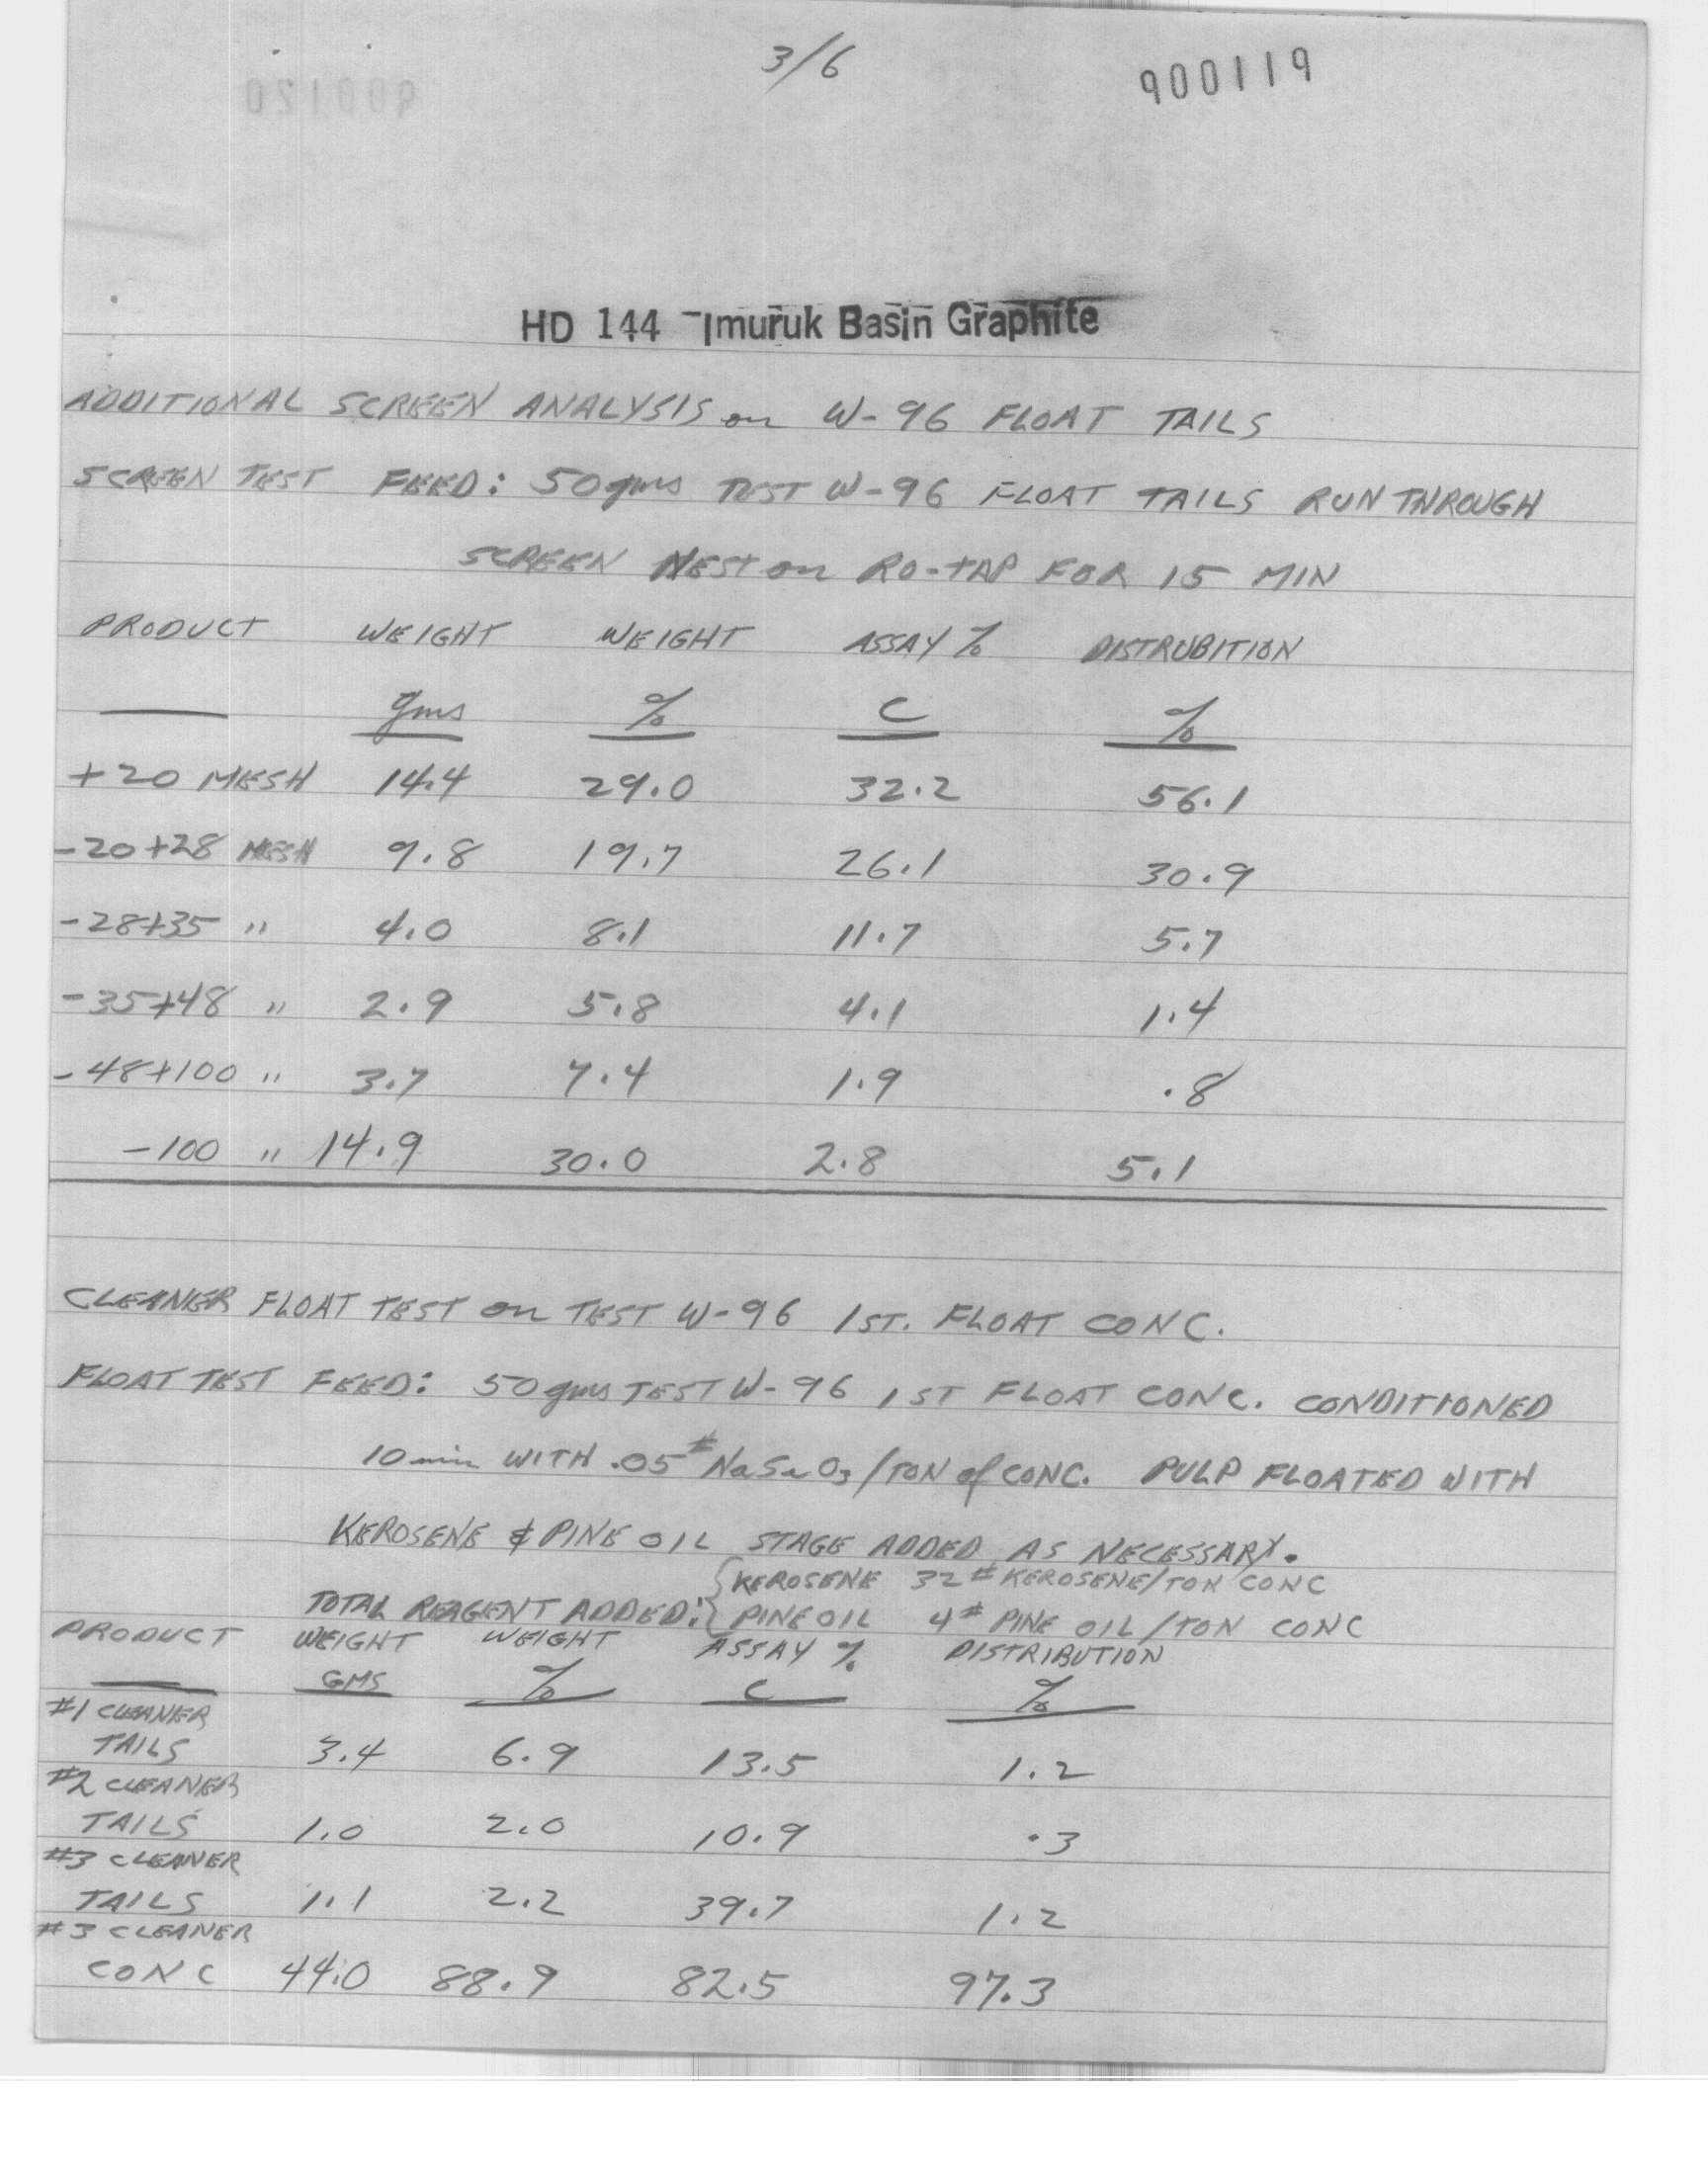 3/6
900119
900120
HD 144 Imuruk Basin Graphite
ADDITIONAL SCREEN ANALYSIS on W-96 FLOAT TAILS
SCREEN TEST FEED: 50 gms TEST W-96 FLOAT TAILS RUN THROUGH
SCREEN NEST on RO-TAP FOR 15 MIN
PRODUCT WEIGHT WEIGHT ASSAY % DISTRUBITION
gms % C %
+20 MESH 14.4 29.0 32.2 56.1
-20+28 MESH 9.8 19.7 26.1 30.9
-28+35 " 4.0 8.1 11.7 5.7
-35+48 " 2.9 5.8 4.1 1.4
-48+100 " 3.7 7.4 1.9 .8
-100 " 14.9 30.0 2.8 5.1
CLEANER FLOAT TEST on TEST W-96 1ST. FLOAT CONC.
FLOAT TEST FEED: 50 gms TEST W-96 1ST FLOAT CONC. CONDITIONED
10 min WITH .05# /TON of CONC. PULP FLOATED WITH
KEROSENE & PINE OIL STAGE ADDED AS NECESSARY.
KEROSENE 32# KEROSENE/TON CONC
TOTAL REAGENT ADDED: PINE OIL 4# PINE OIL/TON CONC
PRODUCT WEIGHT WEIGHT ASSAY % DISTRIBUTION
GMS % C %
#1 CLEANER
TAILS 3.4 6.9 13.5 1.2
#2 CLEANER
TAILS 1.0 2.0 10.9 .3
#3 CLEANER
TAILS 1.1 2.2 39.7 1.2
#3 CLEANER
CONC 44.0 88.9 82.5 97.3